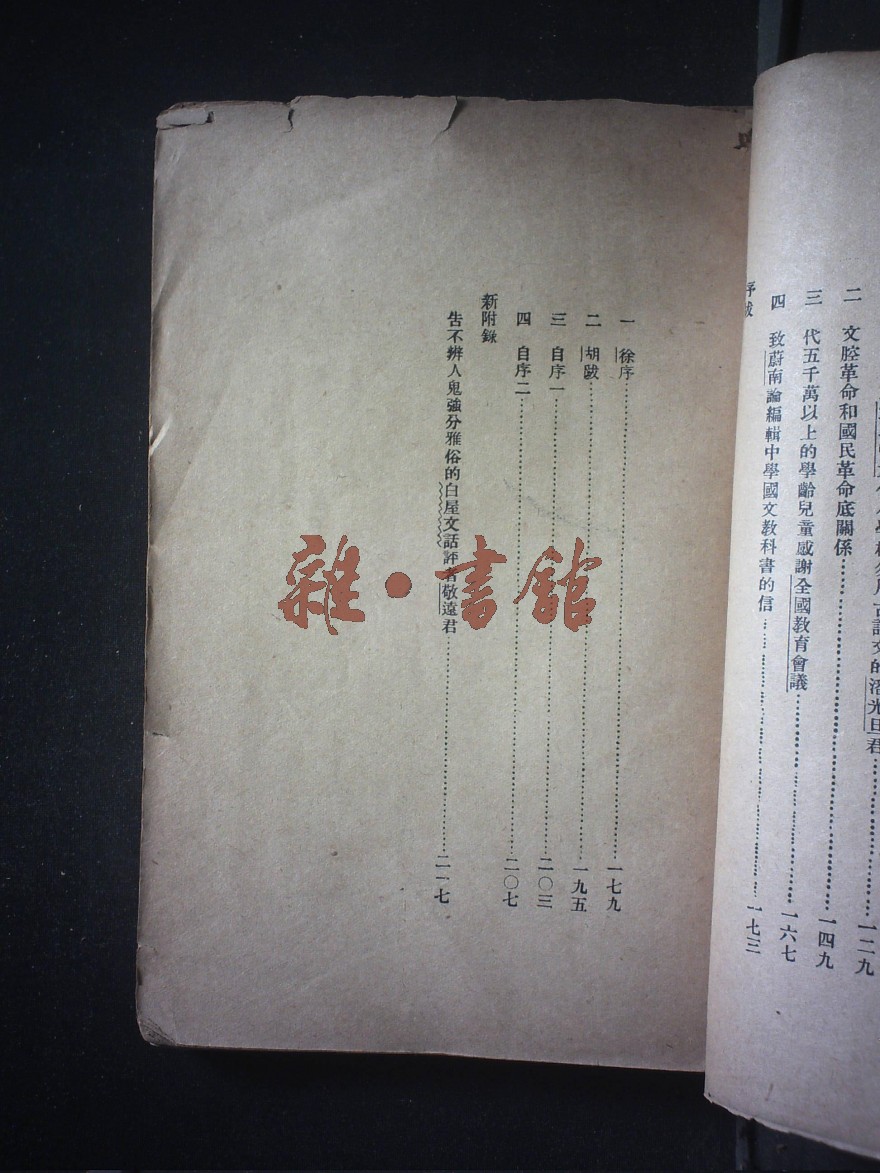 學校須用古話文的潘光旦君……一二九
二 文腔革命和國民革命底關係……一四九
三 代五千萬以上的學齡兒童感謝全國教育會議……一六七
四 致蔚南論編輯中學國文教科書的信……一七三
序跋
一 徐序……一七九
二 胡跋……一九五
三 自序一……二〇三
四 自序二……二〇七
新附錄
告不辨人鬼強分雅俗的白屋文話評者敬遠君……二一七
雜·書館